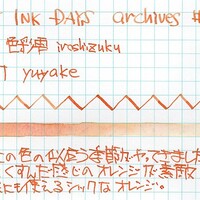 INK DAYS archives #
色彩雫 iroshizuku
yuyake
この色の似合う季節がやってきました
くすんだ感じのオレンジが素敵
にも使えるシックなオレンジ。